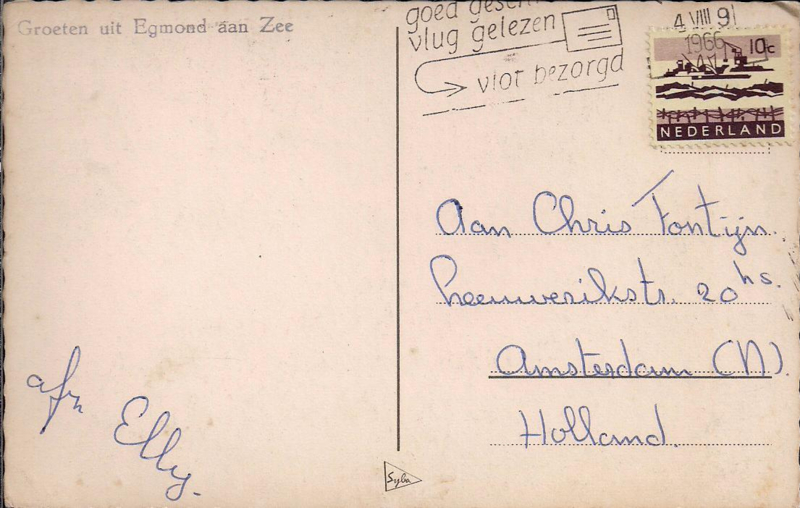 Groeten uit Egmond aan Zee
goed
vlug gelezen
vlot bezorgd
4 VIII 9
1966
10c
NEDERLAND
Aan Chris Fontijn.
Leeuwerikstr. 20 hs.
Amsterdam (N).
Holland.
afz
Elly.
Syba